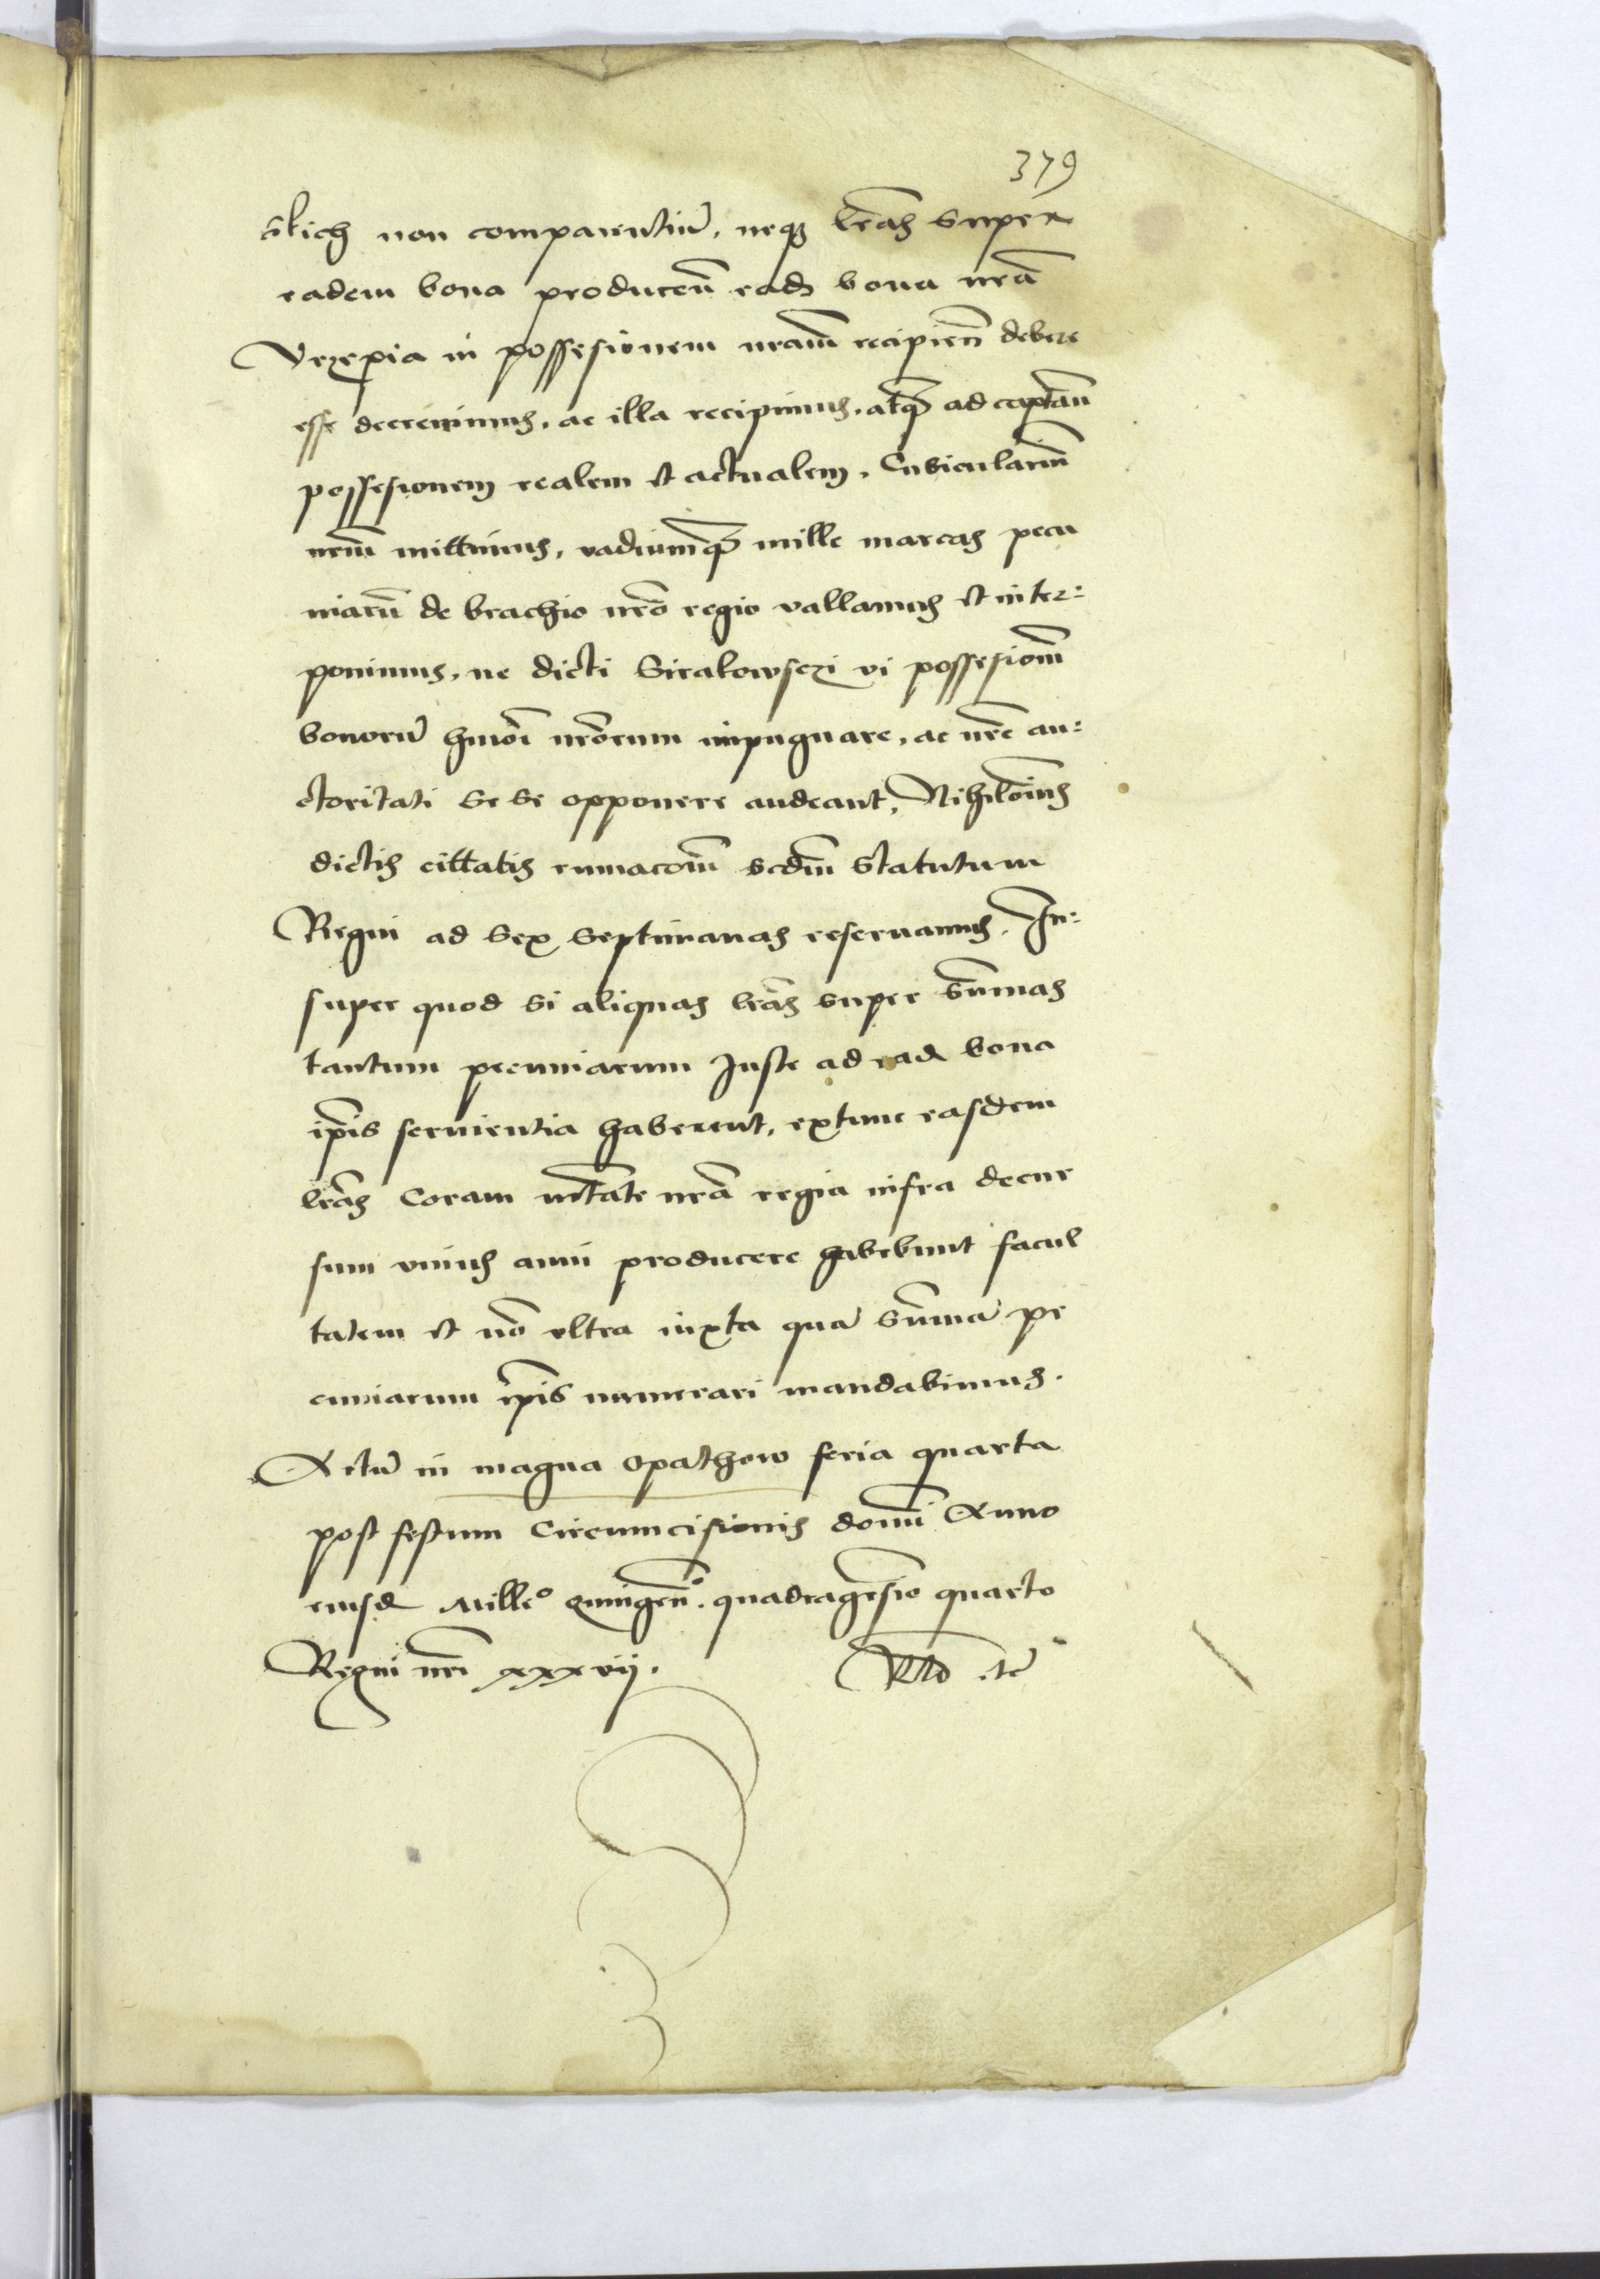 379
non comparentiũ, neq3 lrãs super
eadem bona producen̄ ead bona nrã
in possesionem nram̃ recipien̄ debere
esse decrevimus, ac illa recipimus, atq3 ad captan̄
possesionem realem et actualem, Cubicularium̃
nrm̃ mittimus, vadiumq3 mille marcas pecu
niarũ de brachio nrõ regio vallamus et inter:
ponimus, ne dicti vi possesionm̃
bonorũ hmõi nrõrum impugnare, ac nrẽ au:
ctoritati se se opponere audeant, Nihilomĩus
dictis cittatis scdm̃ statutum
Regni ad sex septimanas reservamus. In:
super quod si aliquas lrãs super sum̃as
tantum pecuniarum Juste ad ead bona
ip̃is servientia haberent, extunc easdem
lrãs Coram mtãte nrã regia infra decur
sum vnius anni producere habebunt facul
tatem et nõ vltra iuxta quã sum̃ã pe
cuniarum ip̃is numerari mandabimus.
Actũ in magna Opathow feria quarta
post festum Circumcisionis domĩ Anno
eiusd Millº quingenº. quadragesĩo quarto
Regni nrĩ xxxvij.